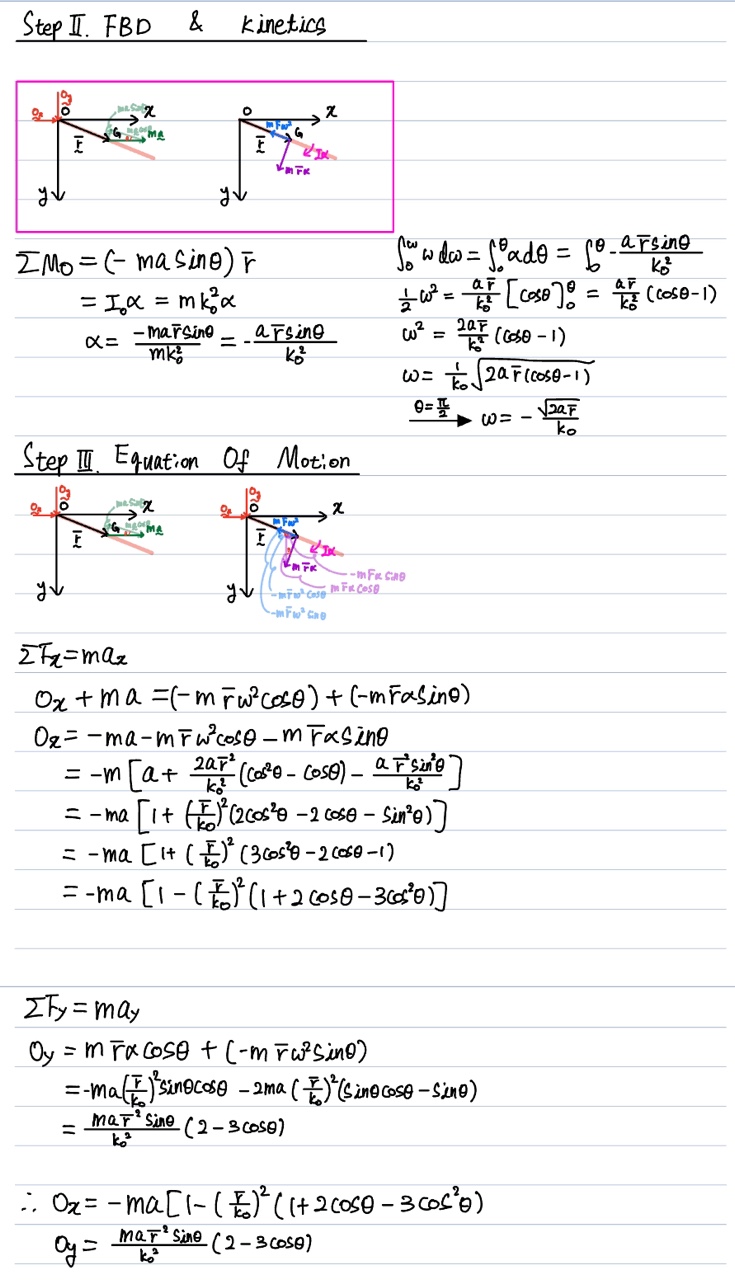 Step II. FBD & Kinetics
Oy
Ox O x
ma sinθ
ma cosθ
G ma
r̄
y
O x
mr̄ω²
G
r̄ Iα
mr̄α
y
ΣMo = (- ma sinθ) r̄
= Ioα = mko²α
α = -mar̄sinθ/mko² = - ar̄sinθ/ko²
∫₀^ω ω dω = ∫₀^θ αdθ = ∫₀^θ - ar̄sinθ/ko²
½ω² = ar̄/ko² [cosθ]₀^θ = ar̄/ko² (cosθ-1)
ω² = 2ar̄/ko² (cosθ-1)
ω = 1/ko √(2ar̄(cosθ-1))
θ=π/2 → ω = - √(2ar̄)/ko
Step III. Equation Of Motion
Oy
Ox O x
ma sinθ
ma cosθ
G ma
r̄
y
Oy
Ox O x
mr̄ω²
r̄ Iα
mr̄α
-mr̄α sinθ
mr̄α cosθ
y
-mr̄ω² cosθ
-mr̄ω² sinθ
ΣFx = max
Ox + ma = (-m r̄ω²cosθ) + (-mr̄αsinθ)
Ox = -ma - m r̄ω²cosθ - m r̄αsinθ
= -m [a + 2ar̄²/ko² (cos²θ - cosθ) - a r̄²sin²θ/ko²]
= -ma [1 + (r̄/ko)²(2cos²θ - 2cosθ - sin²θ)]
= -ma [1 + (r̄/ko)² (3cos²θ - 2cosθ - 1)
= -ma [1 - (r̄/ko)² (1 + 2cosθ - 3cos²θ)]
ΣFy = may
Oy = m r̄αcosθ + (-m r̄ω²sinθ)
= -ma(r̄/ko)²sinθcosθ - 2ma (r̄/ko)²(sinθcosθ - sinθ)
= mar̄² sinθ/ko² (2 - 3cosθ)
∴ Ox = -ma [1 - (r̄/ko)² (1 + 2cosθ - 3cos²θ)
Oy = mar̄² sinθ/ko² (2 - 3cosθ)